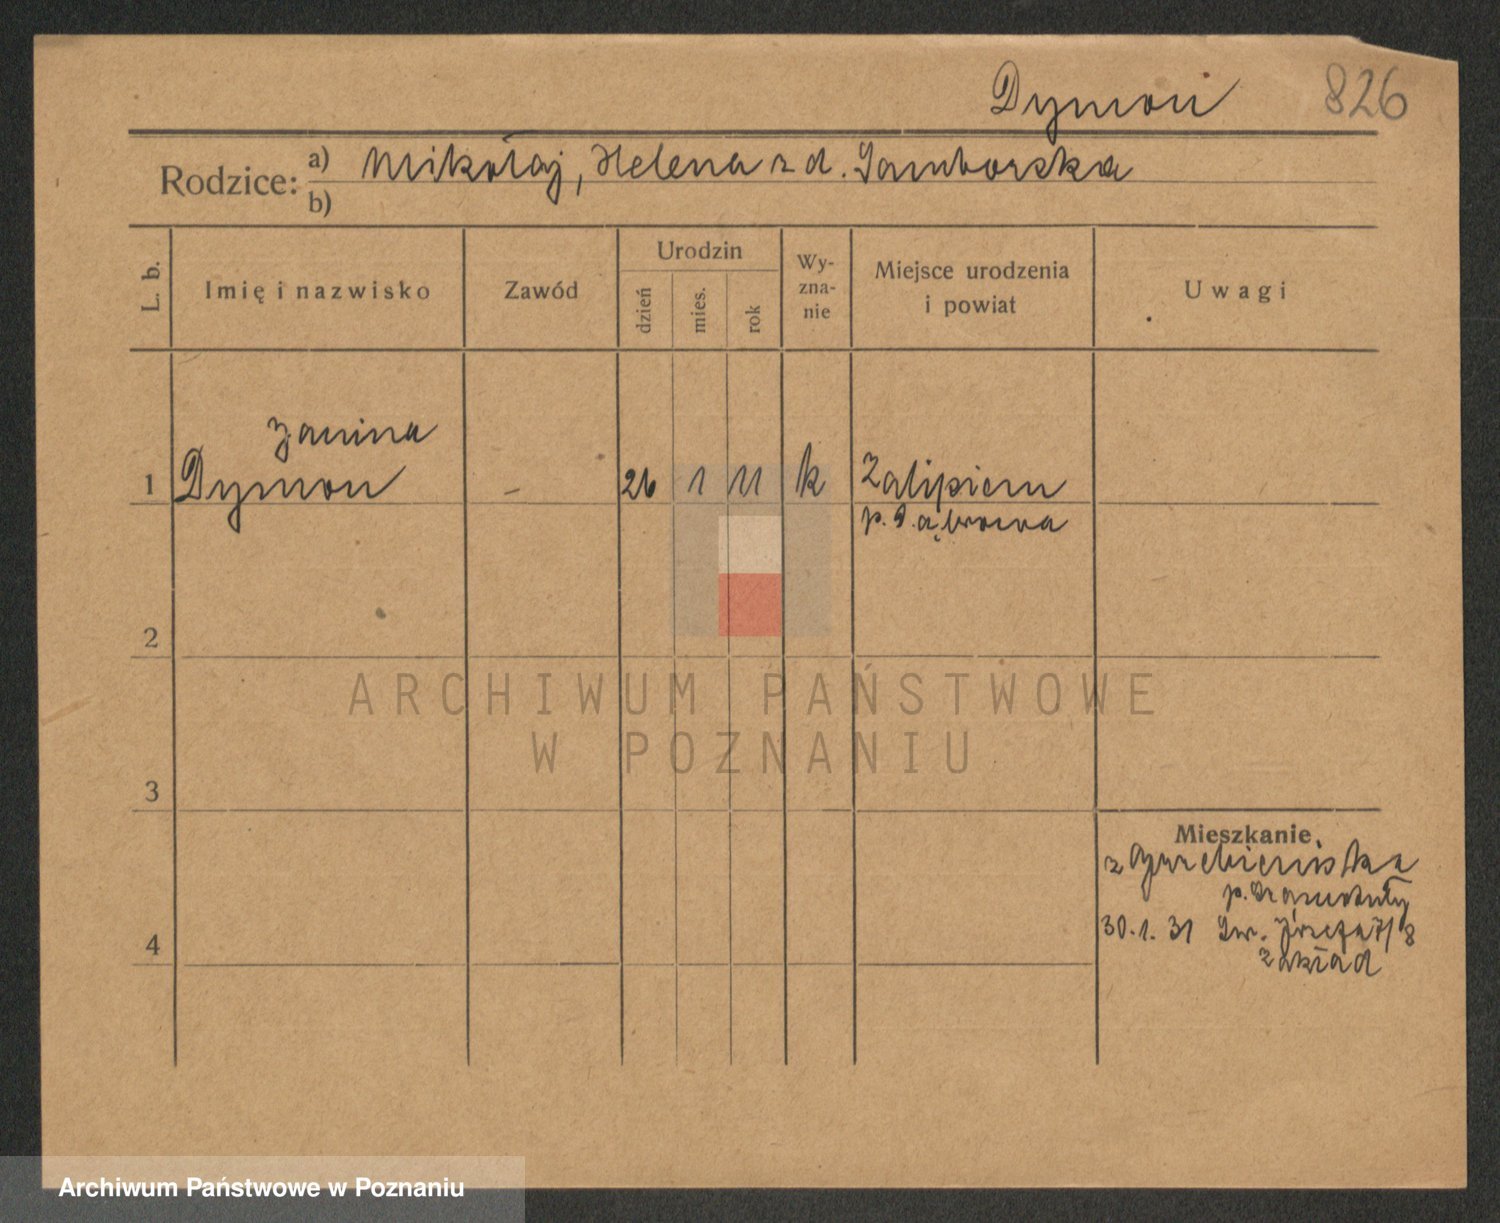 Dymon 826
Rodzice: a) Mikołaj, Helena z d. Samborska
b)
L. b.
Imię i nazwisko
Zawód
Urodzin
dzień
mies.
rok
Wy-
zna-
nie
Miejsce urodzenia
i powiat
Uwagi
Janina
1 Dymon - 26 1 11 k Zalipiem
p. Dąbrowa
2
ARCHIWUM PAŃSTWOWE
W POZNANIU
3
Mieszkanie
z
p. Szamotuły
30.1.31 Św. Józefa 7/8
4
zakład
Archiwum Państwowe w Poznaniu